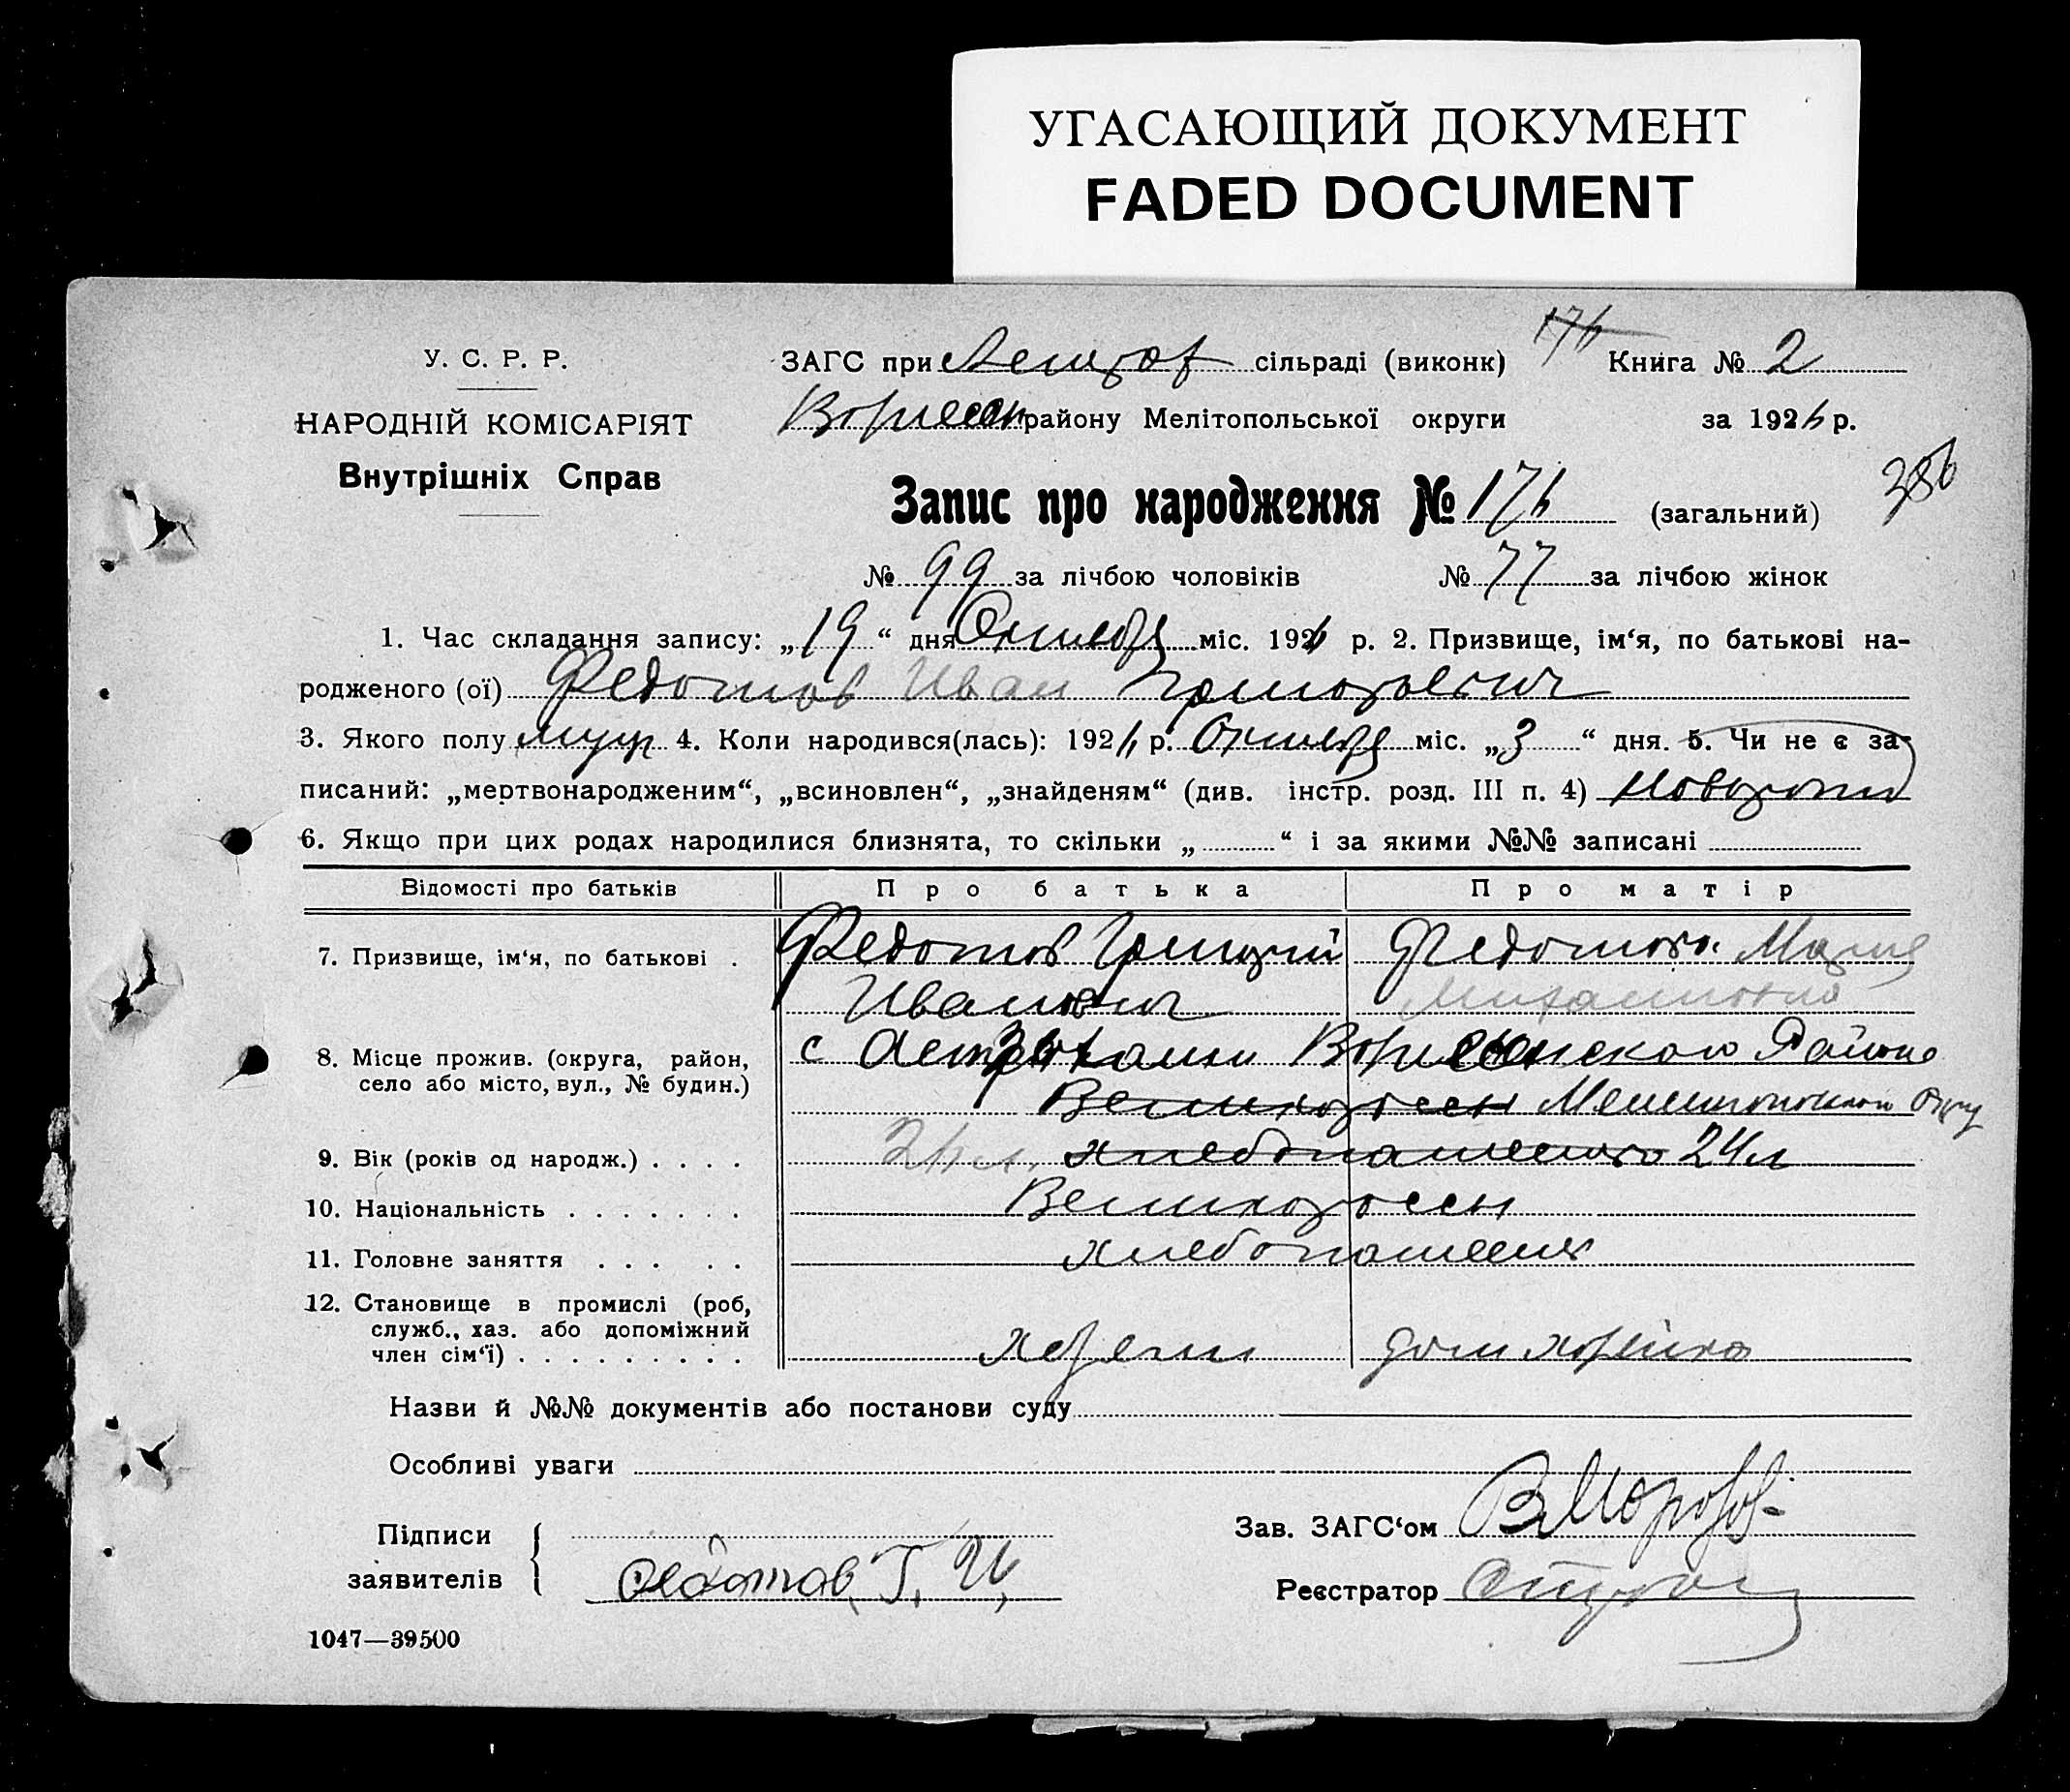 УГАСАЮЩИЙ ДОКУМЕНТ
FADED DOCUMENT
176
У. С. Р. Р.
ЗАГС при сільраді (виконк) Книга № 2
НАРОДНІЙ КОМІСАРІЯТ
району Мелітопольської округи за 1926 р.
Внутрішніх Справ
386
Запис про народження № 176 (загальний)
№ 99 за лічбою чоловіків № 77 за лічбою жінок
1. Час складання запису: „19“ дня Октября міс. 1926 р. 2. Призвище, ім‘я, по батькові на-
родженого (ої) Федотов Иван Григорьевич
3. Якого полу муж 4. Коли народився(лась): 1926 р. Октября міс. „3“ дня. 5. Чи не є за-
писаний: „мертвонародженим“, „всиновлен“, „знайденям“ (див. інстр. розд. III п. 4)
6. Якщо при цих родах народилися близнята, то скільки „ “ і за якими №№ записані
Відомості про батьків Про батька Про матір
7. Призвище, ім‘я, по батькові . Федотов Григорий Федотова Мария
Иванович Михайловна
8. Місце прожив. (округа, район, с Астраханки Района
село або місто, вул., № будин.) Великороссы Мелитопольск Окру
9. Вік (років од народж.) . . . . 26 л. хлебопашество 24 л
10. Національність . . . . . . . Великороссы
11. Головне заняття . . . . . хлебопашество
12. Становище в промислі (роб,
служб., хаз. або допоміжний
член сім‘ї) . . . . . . . . . хозяин дом хозяйка
Назви й №№ документів або постанови суду
Особливі уваги
Підписи
заявителів Федотов, Г. И,
Зав. ЗАГС‘ом ВМорозов
Реєстратор
1047—39500